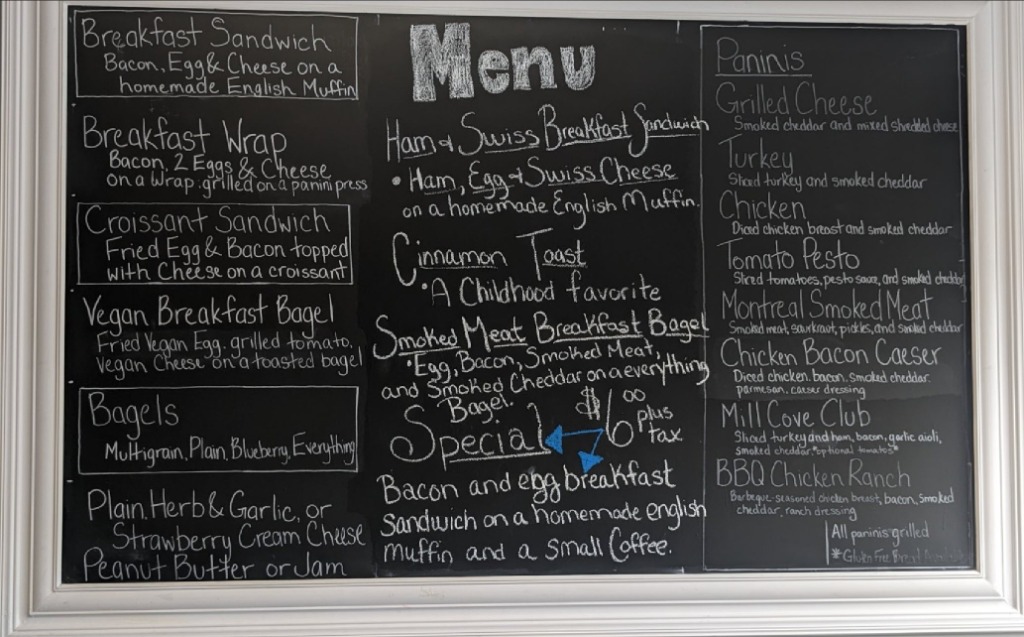 Breakfast Sandwich
Bacon, Egg & Cheese on a
homemade English Muffin
Breakfast Wrap
Bacon, 2 Eggs & Cheese
on a Wrap. grilled on a panini press
Croissant Sandwich
Fried Egg & Bacon topped
with Cheese on a croissant
Vegan Breakfast Bagel
Fried Vegan Egg, grilled tomato,
Vegan Cheese on a toasted bagel
Bagels
Multigrain, Plain, Blueberry, Everything
Plain, Herb & Garlic, or
Strawberry Cream Cheese
Peanut Butter or Jam
Menu
Ham & Swiss Breakfast Sandwich
• Ham, Egg & Swiss Cheese
on a homemade English Muffin.
Cinnamon Toast
• A Childhood favorite
Smoked Meat Breakfast Bagel
• Egg, Bacon, Smoked Meat,
and Smoked Cheddar on a everything
Bagel.
Special $6.00 plus tax
Bacon and egg breakfast
Sandwich on a homemade english
muffin and a small Coffee.
Paninis
Grilled Cheese
Smoked cheddar and mixed shredded cheese
Turkey
Sliced turkey and smoked cheddar
Chicken
Diced chicken breast and smoked cheddar
Tomato Pesto
Sliced tomatoes, pesto sauce, and smoked cheddar
Montreal Smoked Meat
Smoked meat, saurkraut, pickles, and smoked cheddar
Chicken Bacon Caeser
Diced chicken, bacon, smoked cheddar,
parmesan, caeser dressing
Mill Cove Club
Sliced turkey and ham, bacon, garlic aioli,
smoked cheddar *optional tomatos*
BBQ Chicken Ranch
Barbeque-seasoned chicken breast, bacon, smoked
cheddar, ranch dressing
All paninis grilled
*Gluten Free Bread